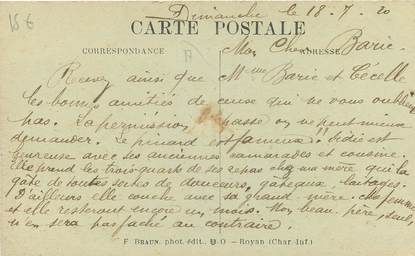 15 €
Dimanche le 18-7-20
CARTE POSTALE
CORRESPONDANCE
ADRESSE
Mon Cher Baric
Recevez ainsi que Mme Baric et Cécelle
les bonnes amitiés de ceux qui ne vous oublient
pas. La permission, passé on ne peut mieux
demander. Le pinard est fameux!! Didie est
heureuse avec ses anciennes camarades et cousine.
Elle prend les trois quarts de ses repas chez ma mère qui la
gâte de toutes sortes de douceurs, gateaux, laitages.
D'ailleurs elle couche avec sa grand'mère. Ma femme
et elle resteront encore un mois. Mon beau-père, seul,
n'en sera pas fâché au contraire.
F. BRAUN, phot. édit., ROYAN (Char. Inf.)